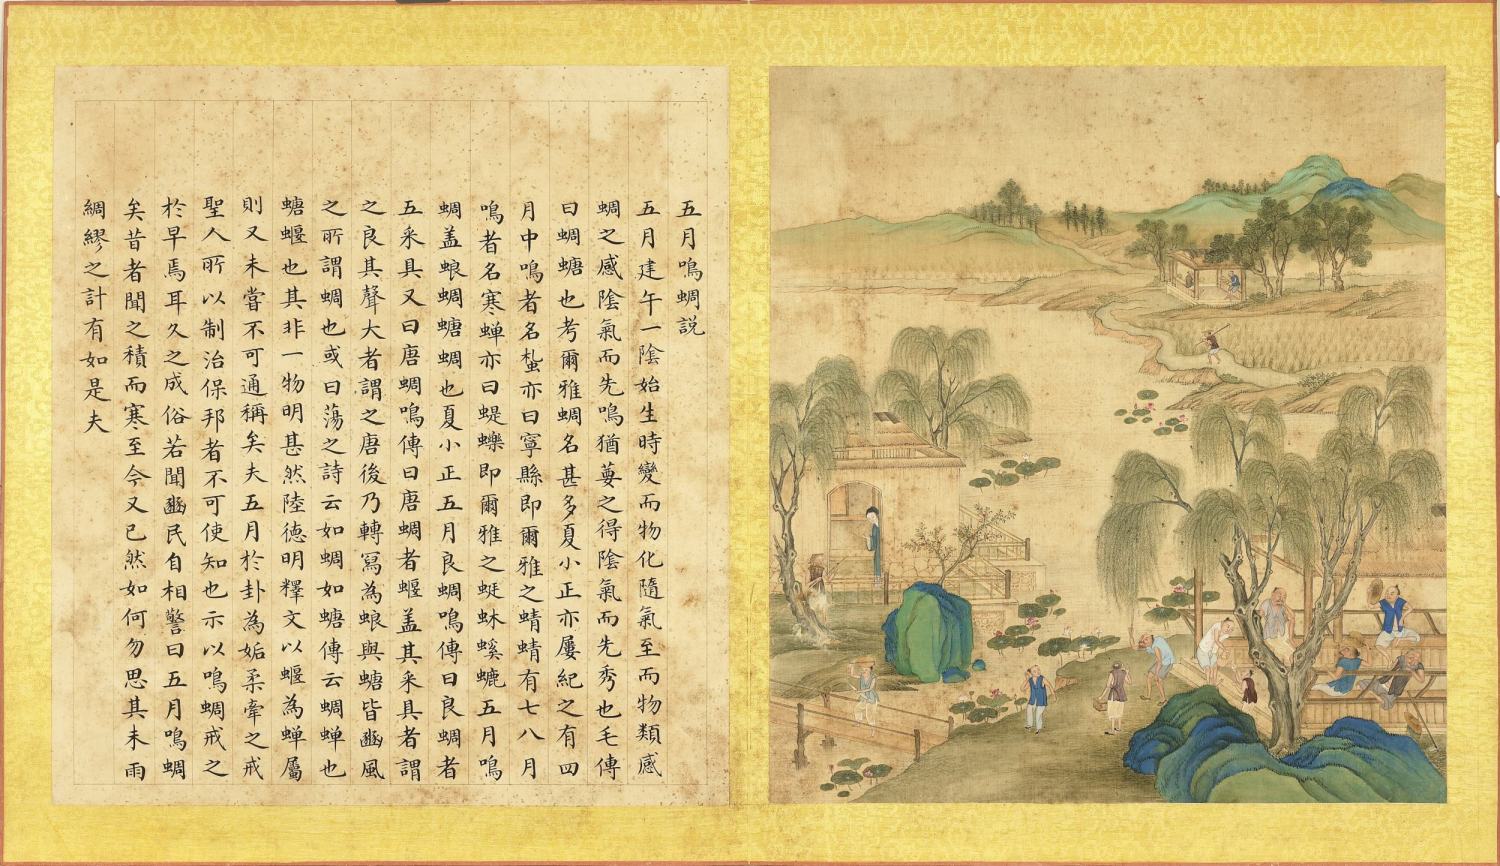 五月鳴蜩説
五月建午一陰始生時變而物化隨氣至而物類感
蜩之感陰氣而先鳴猶葽之得陰氣而先秀也毛傳
曰蜩螗也考爾雅蜩名甚多夏小正亦屢紀之有四
月中鳴者名䖝亦曰寧縣即爾雅之蜻蜻有七八月
鳴者名寒蝉亦曰蝭蠑即爾雅之蜓蚞螇螰五月鳴
蜩盖蜋蜩螗蜩也夏小正五月良蜩鳴傳曰良蜩者
五采具又曰唐蜩鳴傳曰唐蜩者蝘盖其采具者謂
之良其聲大者謂之唐後乃轉寫為蜋與螗皆豳風
之所謂蜩也或曰蕩之詩云如蜩如螗傳云蜩蝉也
螗蝘也其非一物明甚然陸德明釋文以蝘為蝉屬
則又未嘗不可通稱矣夫五月於卦為姤柔牽之戒
聖人所以制治保邦者不可使知也示以鳴蜩戒之
於早焉耳久之成俗若聞豳民自相警曰五月鳴蜩
矣昔者聞之積而寒至今又已然如何勿思其未雨
綢繆之計有如是夫